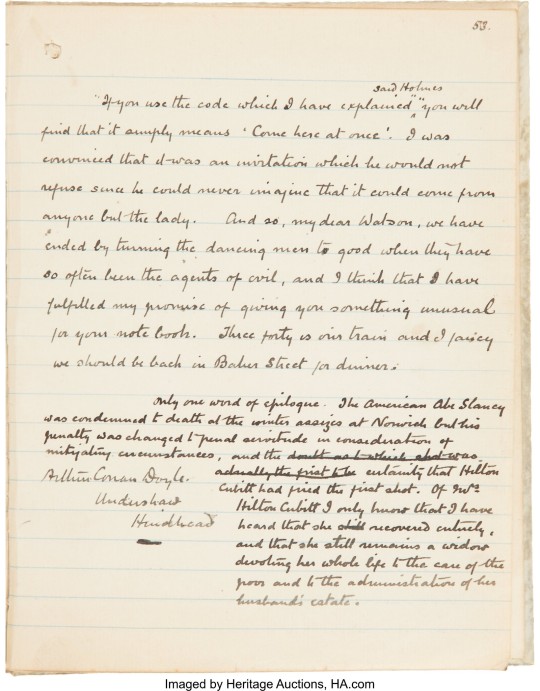 53.
said Holmes
"If you use the code which I have explained" "you will
find that it simply means 'Come here at once'. I was
convinced that it was an invitation which he would not
refuse since he could never imagine that it could come from
anyone but the lady. And so, my dear Watson, we have
ended by turning the dancing men to good when they have
so often been the agents of evil, and I think that I have
fulfilled my promise of giving you something unusual
for your note book. Three forty is our train and I fancy
we should be back in Baker Street for dinner."
Only one word of epilogue. The American Abe Slaney
was condemned to death at the winter assizes at Norwich but his
penalty was changed to penal servitude in consideration of
mitigating circumstances, and the doubt as to which shot was
actually the first to be certainty that Hilton
Cubitt had fired the first shot. Of Mrs
Hilton Cubitt I only know that I have
heard that she still recovered entirely,
and that she still remains a widow
devoting her whole life to the care of the
poor and to the administration of her
husband's estate.
Arthur Conan Doyle.
Undershaw
Hindhead
Imaged by Heritage Auctions, HA.com